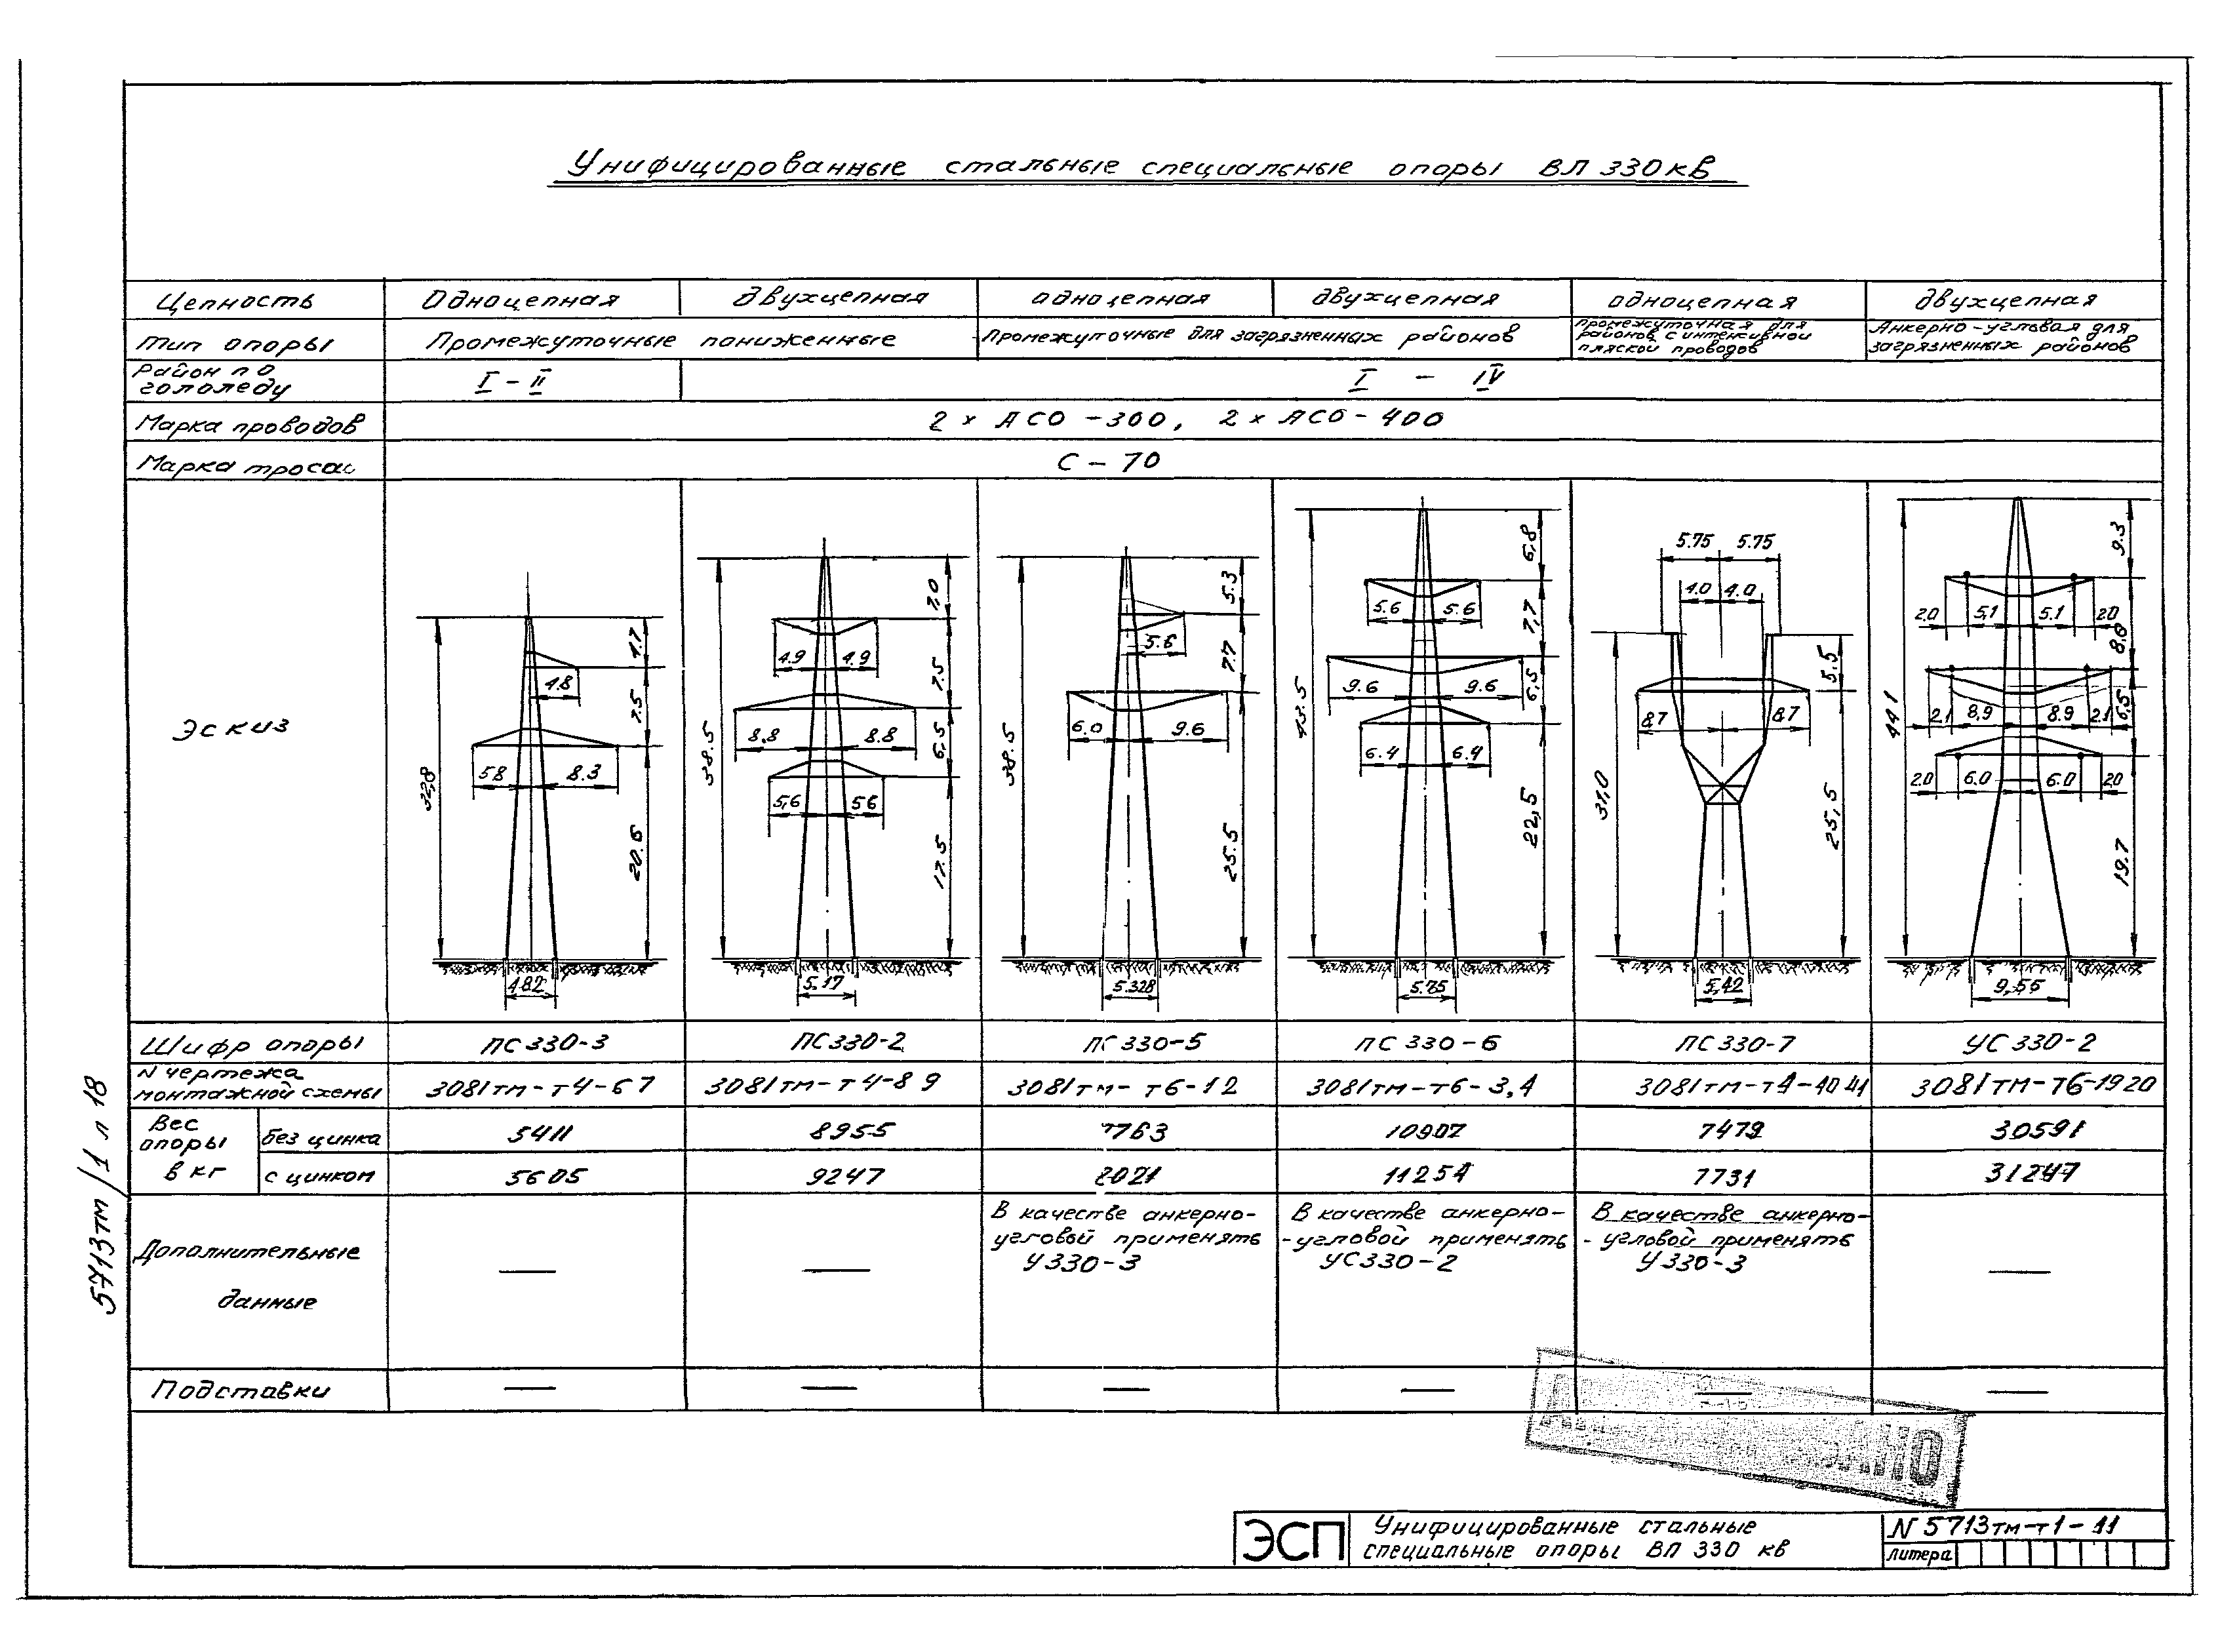 Унифицированные стальные специальные опоры ВЛ 330кв
Цепность Одноцепная двухцепная одноцепная двухцепная одноцепная двухцепная
Тип опоры Промежуточные пониженные Промежуточные для загрязненных районов
Промежуточная для районов с интенсивной пляской проводов
Анкерно-угловая для загрязненных районов
Район по гололеду I - II I - IV
Марка проводов 2 × АСО - 300, 2 × АСО - 400
Марка троса С - 70
Эскиз
32,8 4.7 7.5 20.6 4.8 5.8 8.3 4.82
38.5 7.0 7.5 6,5 17.5 4.9 4.9 8.8 8.8 5,6 5.6 5.17
38.5 5.3 7.7 25.5 5.6 6.0 9.6 5.328
43.5 6,8 7,7 6,5 22,5 5.6 5.6 9.6 9.6 6.4 6.4 5.75
5.75 5.75 4.0 4.0 31,0 5.5 25,5 8.7 8.7 5,42
44.1 9.3 8.0 6,5 19.7 2.0 5,1 5.1 2.0 2.1 8,9 8.9 2.1 2.0 6.0 6.0 2.0
Шифр опоры ПС 330-3 ПС330-2 ПС 330-5 ПС 330-6 ПС 330-7 УС 330-2
N чертежа
монтажной схемы 3081тм-т4-6 7 3081тм-т4-8 9 3081тм-т6-1 2 3081тм-т6-3,4 3081тм-т4-40 41 3081тм-т6-19 20
Вес опоры в кг
без цинка 5411 8955 7763 10907 7479 30591
с цинком 5605 9247 11254 7731 31247
Дополнительные данные
— —
В качестве анкерно-
угловой применять
У330-3
В качестве анкерно-
-угловой применять
УС330-2
В качестве анкерно-
-угловой применять
У330-3
—
Подставки — — — — — —
5713тм/1 л 18
ЭСП
Унифицированные стальные
специальные опоры ВЛ 330 кв
N 5713тм-т1-11
литера